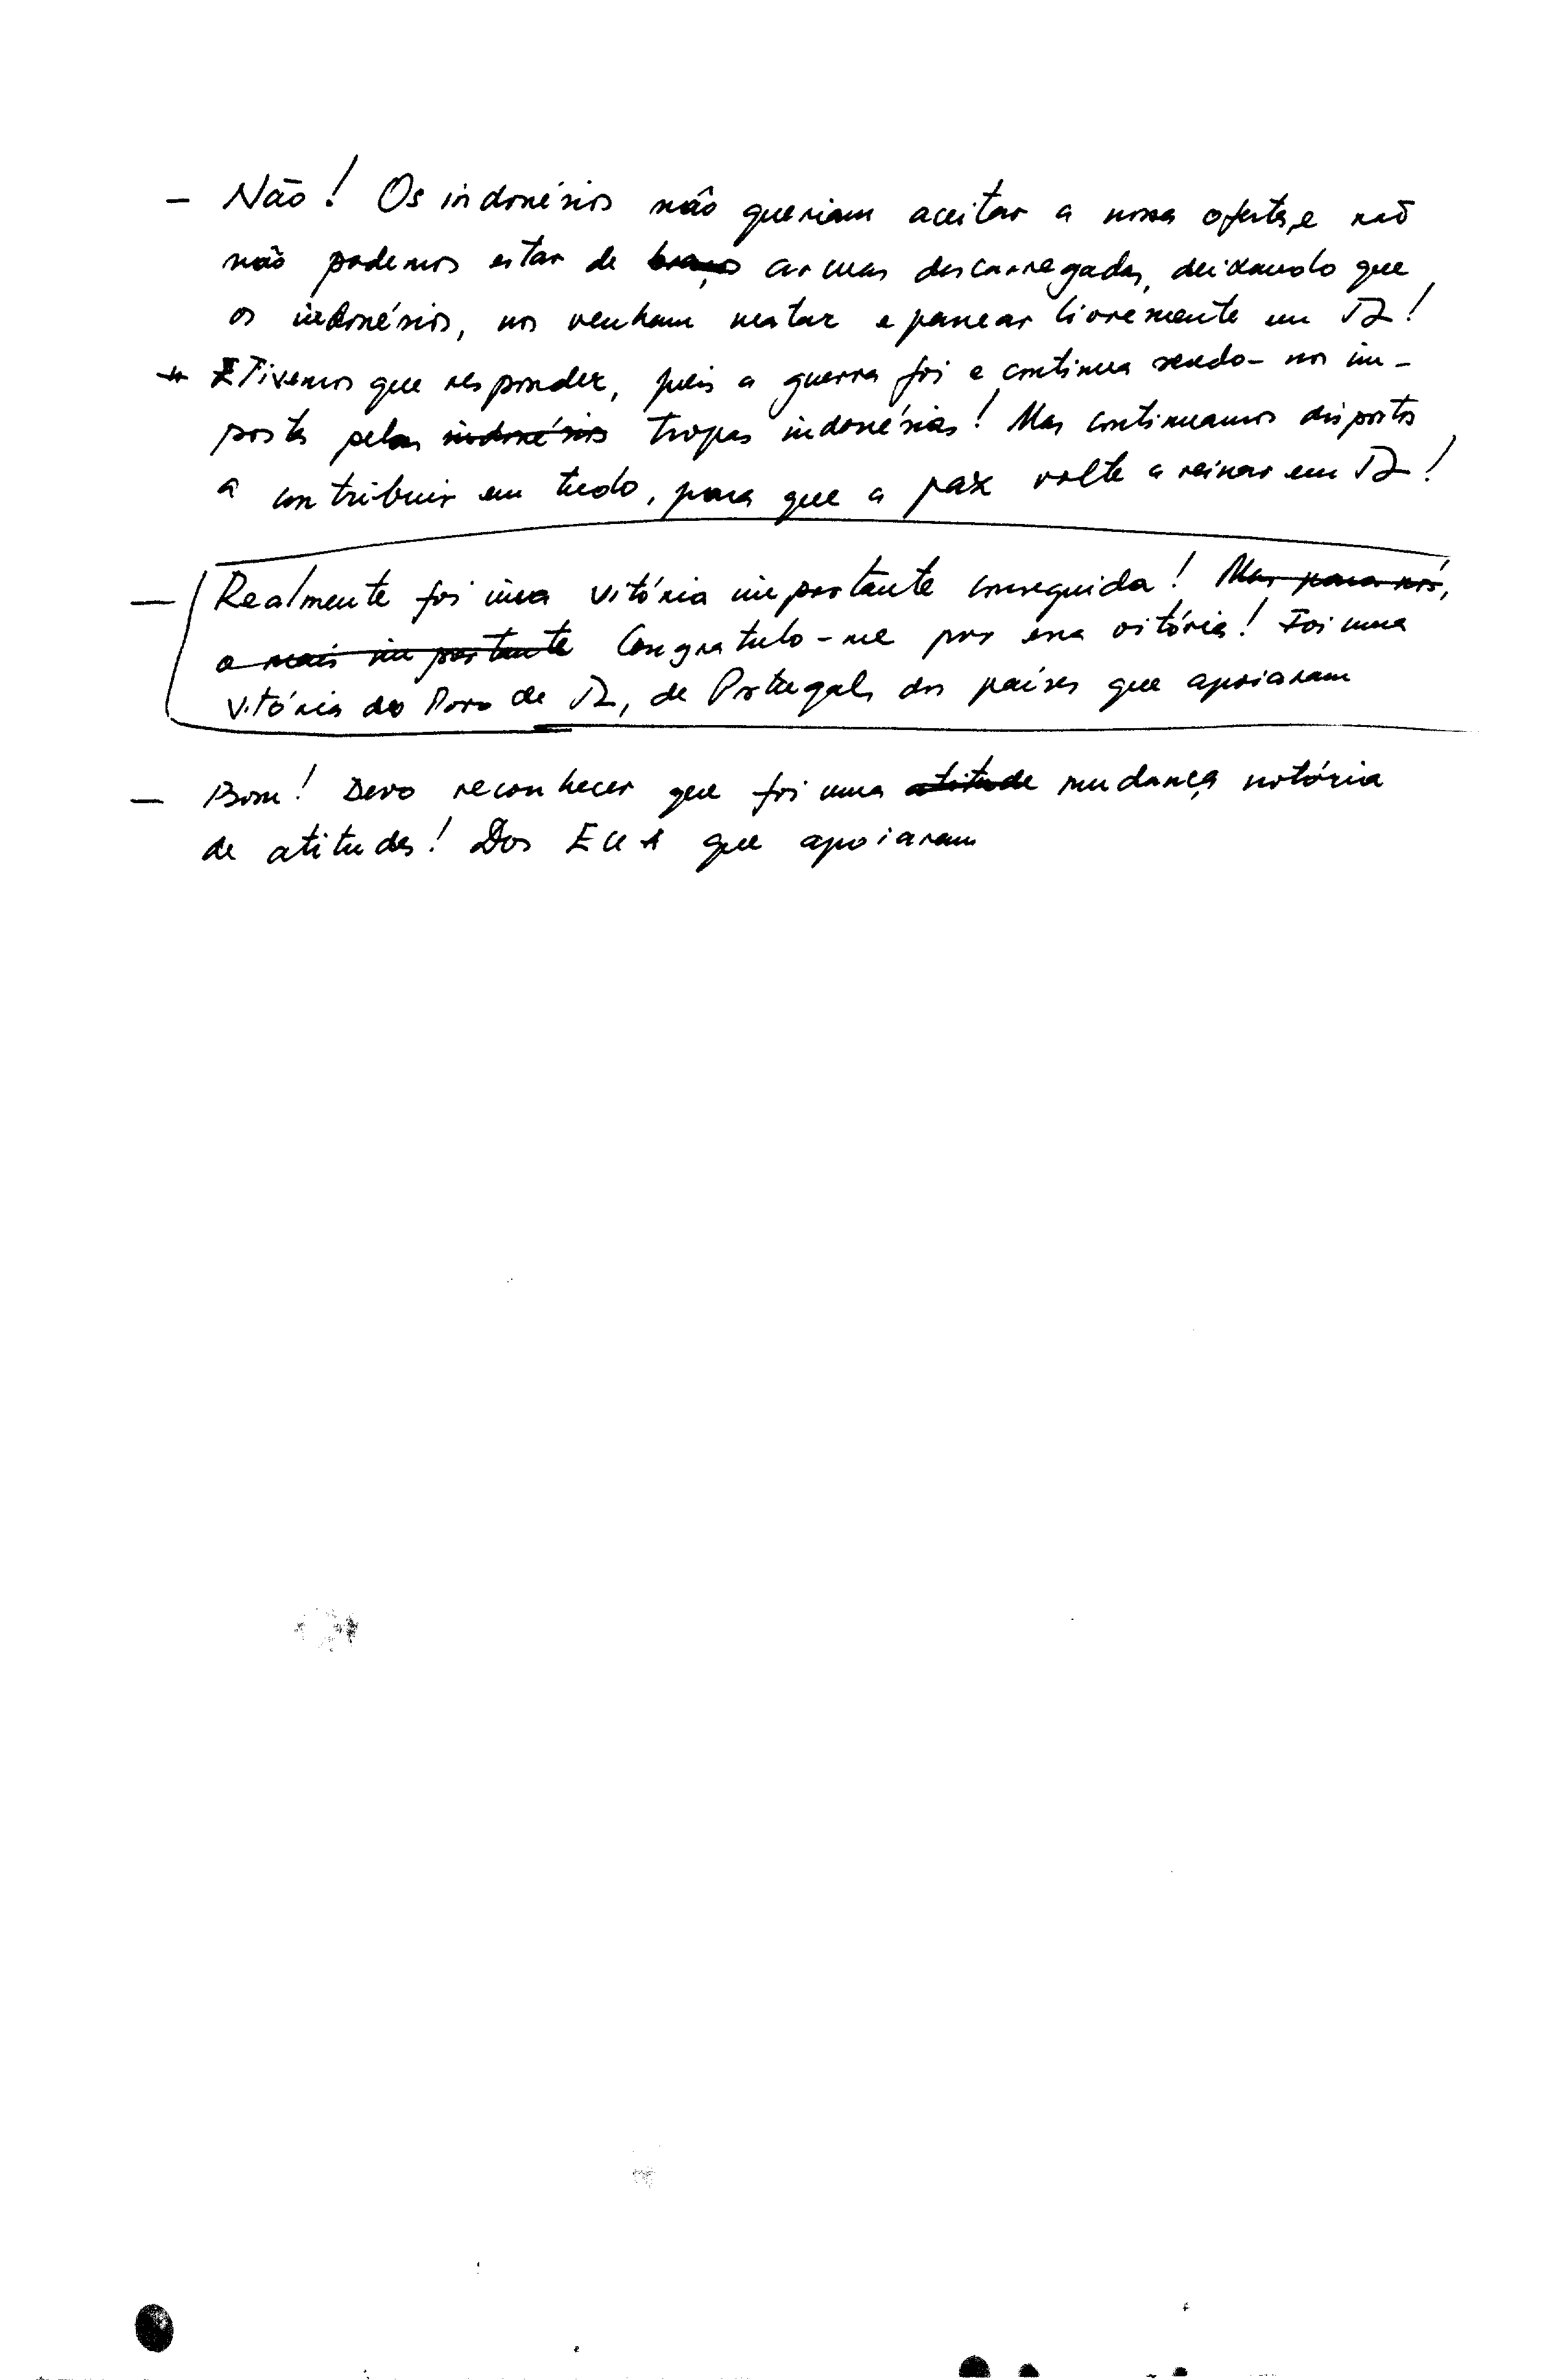 - Não! Os indonésios não queriam aceitar a nossa oferta, e nós
não podemos estar de braços armas descarregadas, deixando que
os indonésios, nos venham matar e passear livremente em TL!
E Tivemos que responder, pois a guerra foi e continua sendo-nos im-
posta pelas indonésios tropas indonésias! Mas continuamos dispostos
a contribuir em tudo, para que a paz volte a reinar em TL!
- Realmente foi uma vitória importante conseguida! Mas para nós,
a mais importante Congratulo-me por essa vitória! Foi uma
vitória do Povo de TL, de Portugal, dos países que apoiaram
- Bom! Devo reconhecer que foi uma atitude mudança notória
de atitudes! Dos EUA que apoiaram